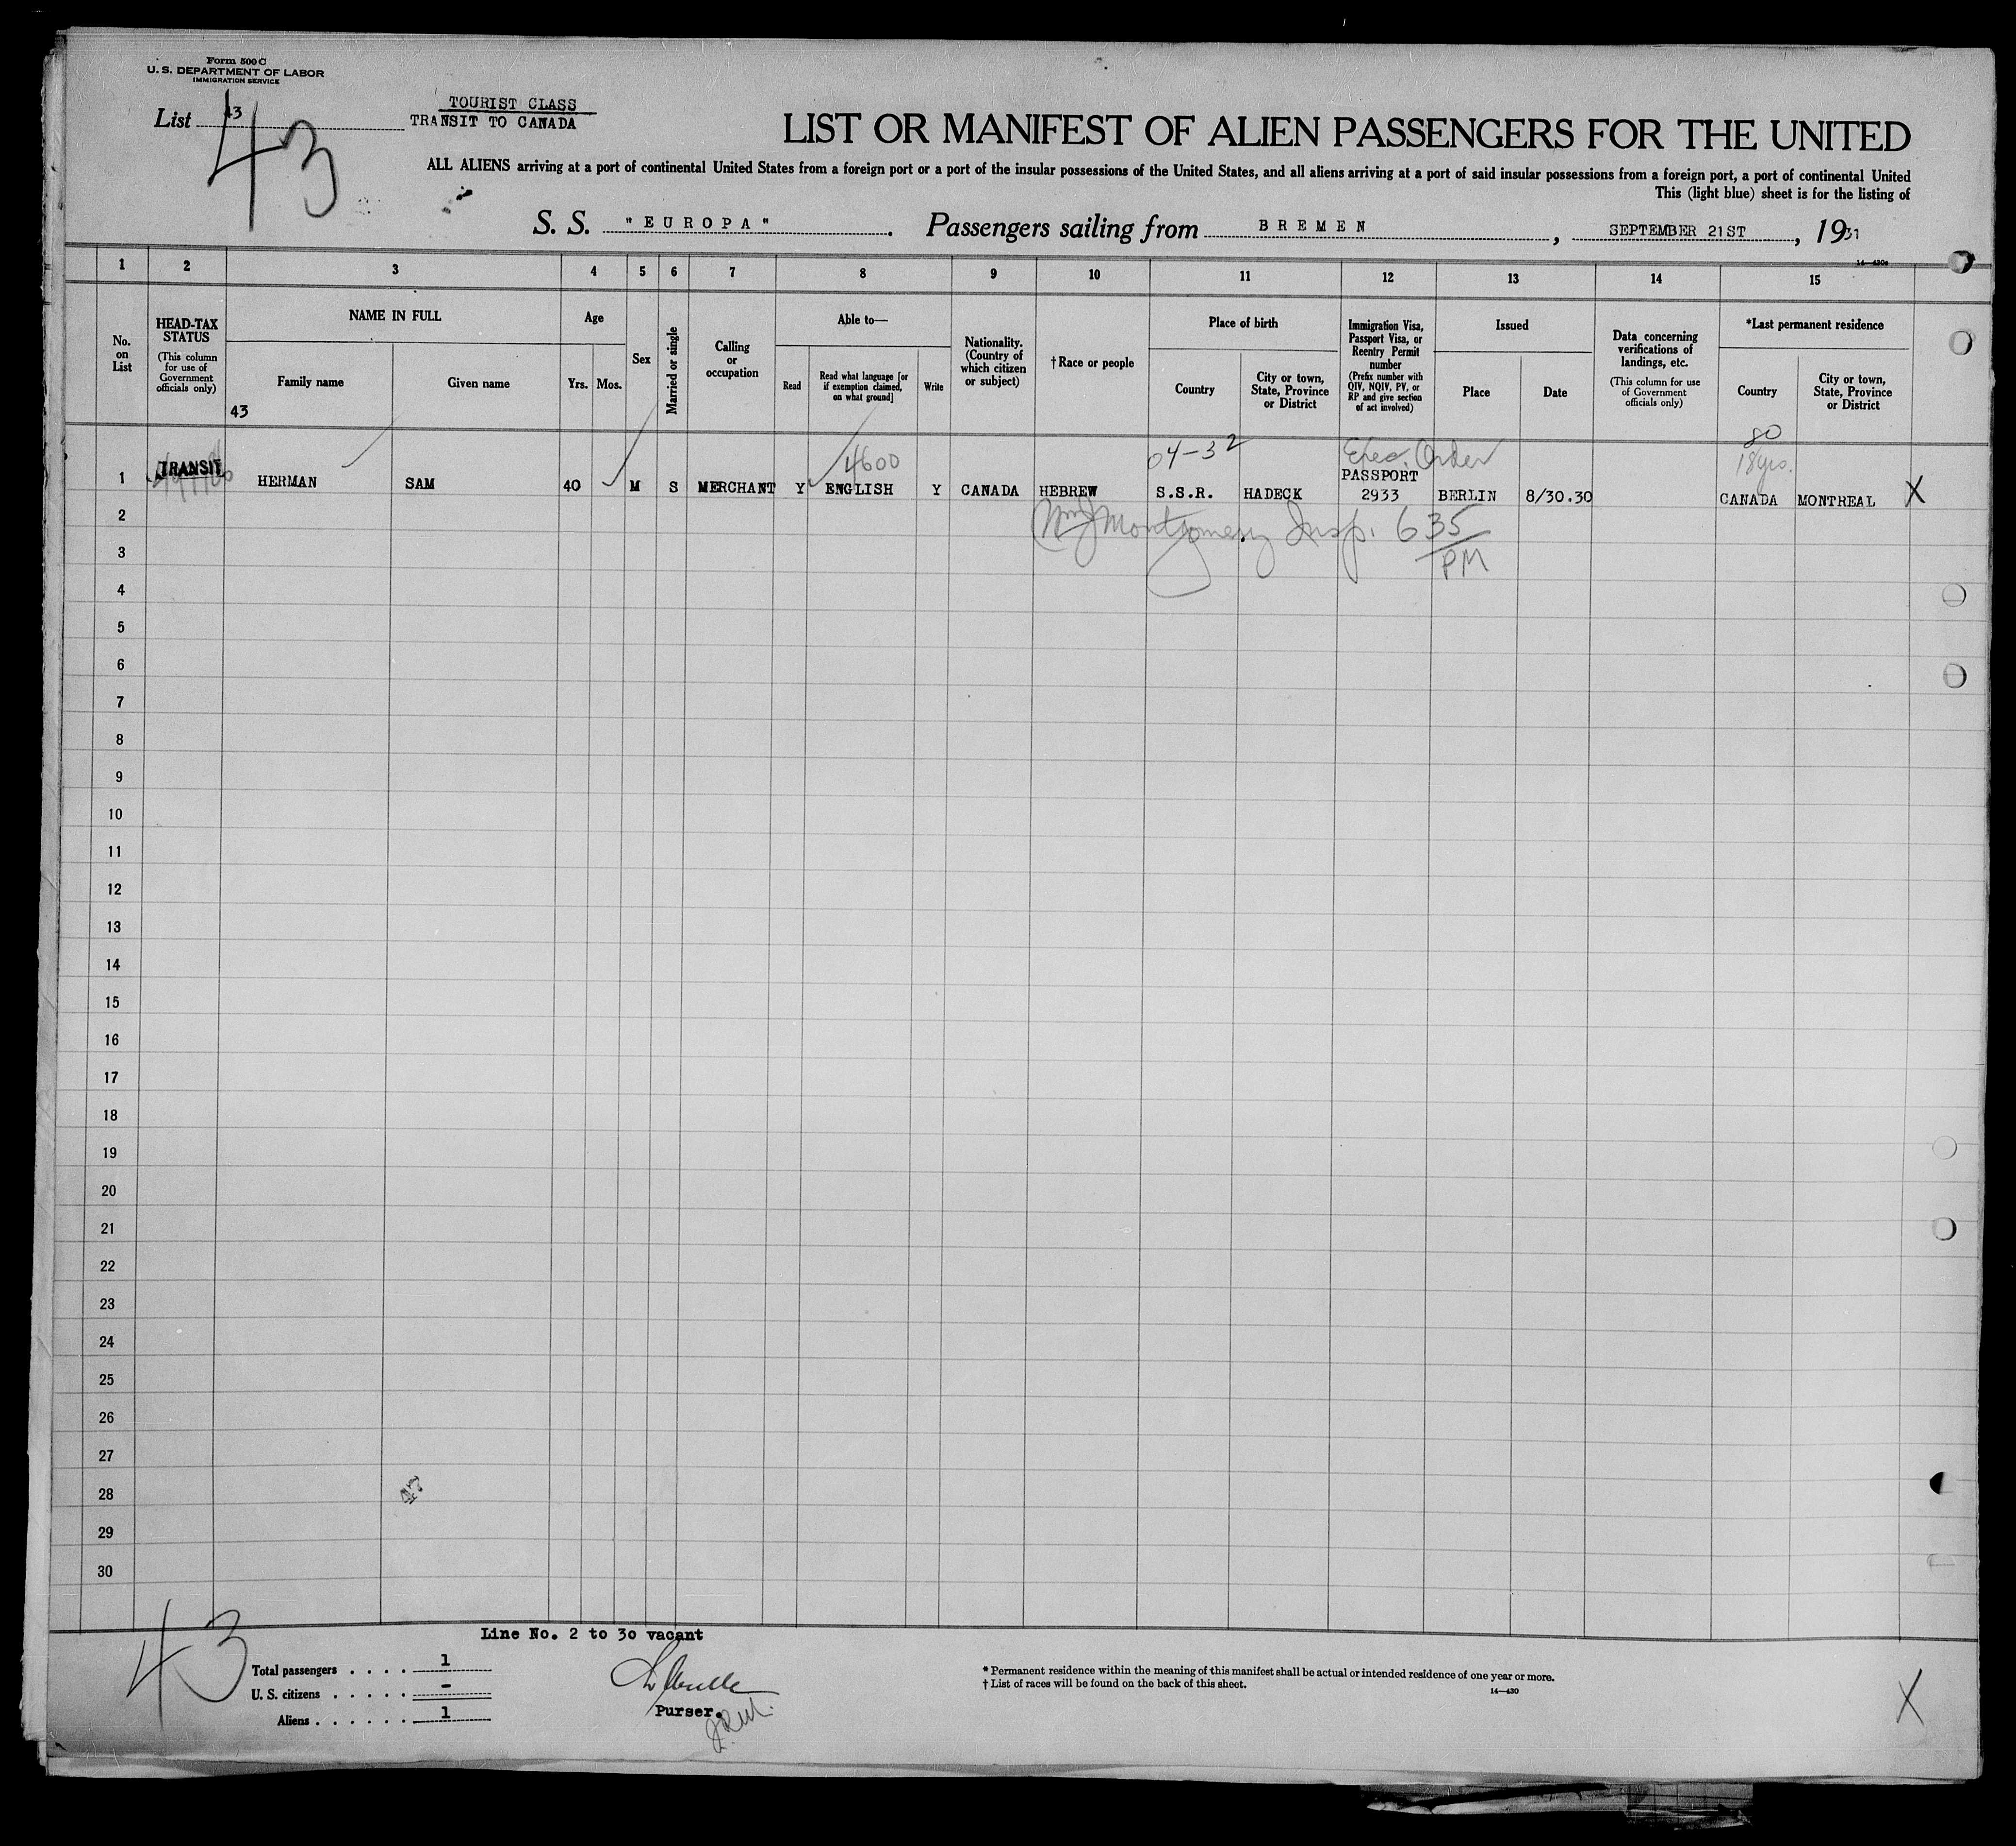 Form 500 C
U. S. DEPARTMENT OF LABOR
IMMIGRATION SERVICE
List 43
43
TOURIST CLASS
TRANSIT TO CANADA
LIST OR MANIFEST OF ALIEN PASSENGERS FOR THE UNITED
ALL ALIENS arriving at a port of continental United States from a foreign port or a port of the insular possessions of the United States, and all aliens arriving at a port of said insular possessions from a foreign port, a port of continental United
This (light blue) sheet is for the listing of
S. S. "EUROPA". Passengers sailing from BREMEN, SEPTEMBER 21ST, 1931
14—430c
1 2 3 4 5 6 7 8 9 10 11 12 13 14 15
No. on List
HEAD-TAX STATUS (This column for use of Government officials only)
NAME IN FULL
Family name
Given name
43
Age
Yrs. Mos.
Sex
Married or single
Calling or occupation
Able to—
Read
Read what language [or if exemption claimed, on what ground]
Write
Nationality. (Country of which citizen or subject)
† Race or people
Place of birth
Country
City or town, State, Province or District
Immigration Visa, Passport Visa, or Reentry Permit number (Prefix number with QIV, NQIV, PV, or RP and give section of act involved)
Issued
Place
Date
Data concerning verifications of landings, etc. (This column for use of Government officials only)
*Last permanent residence
Country
City or town, State, Province or District
4600 04-32 Exec. Order 80
18 yrs.
1 TRANSIT HERMAN SAM 40 M S MERCHANT Y ENGLISH Y CANADA HEBREW S.S.R. HADECK PASSPORT 2933 BERLIN 8/30.30 CANADA MONTREAL X
2 Wm J Montgomery Insp. 635
3 PM
4
5
6
7
8
9
10
11
12
13
14
15
16
17
18
19
20
21
22
23
24
25
26
27
28 47
29
30
43
Line No. 2 to 30 vacant
Total passengers . . . . 1
U. S. citizens . . . . . -
Aliens . . . . . . 1
Purser.
* Permanent residence within the meaning of this manifest shall be actual or intended residence of one year or more.
† List of races will be found on the back of this sheet.
14—430
X